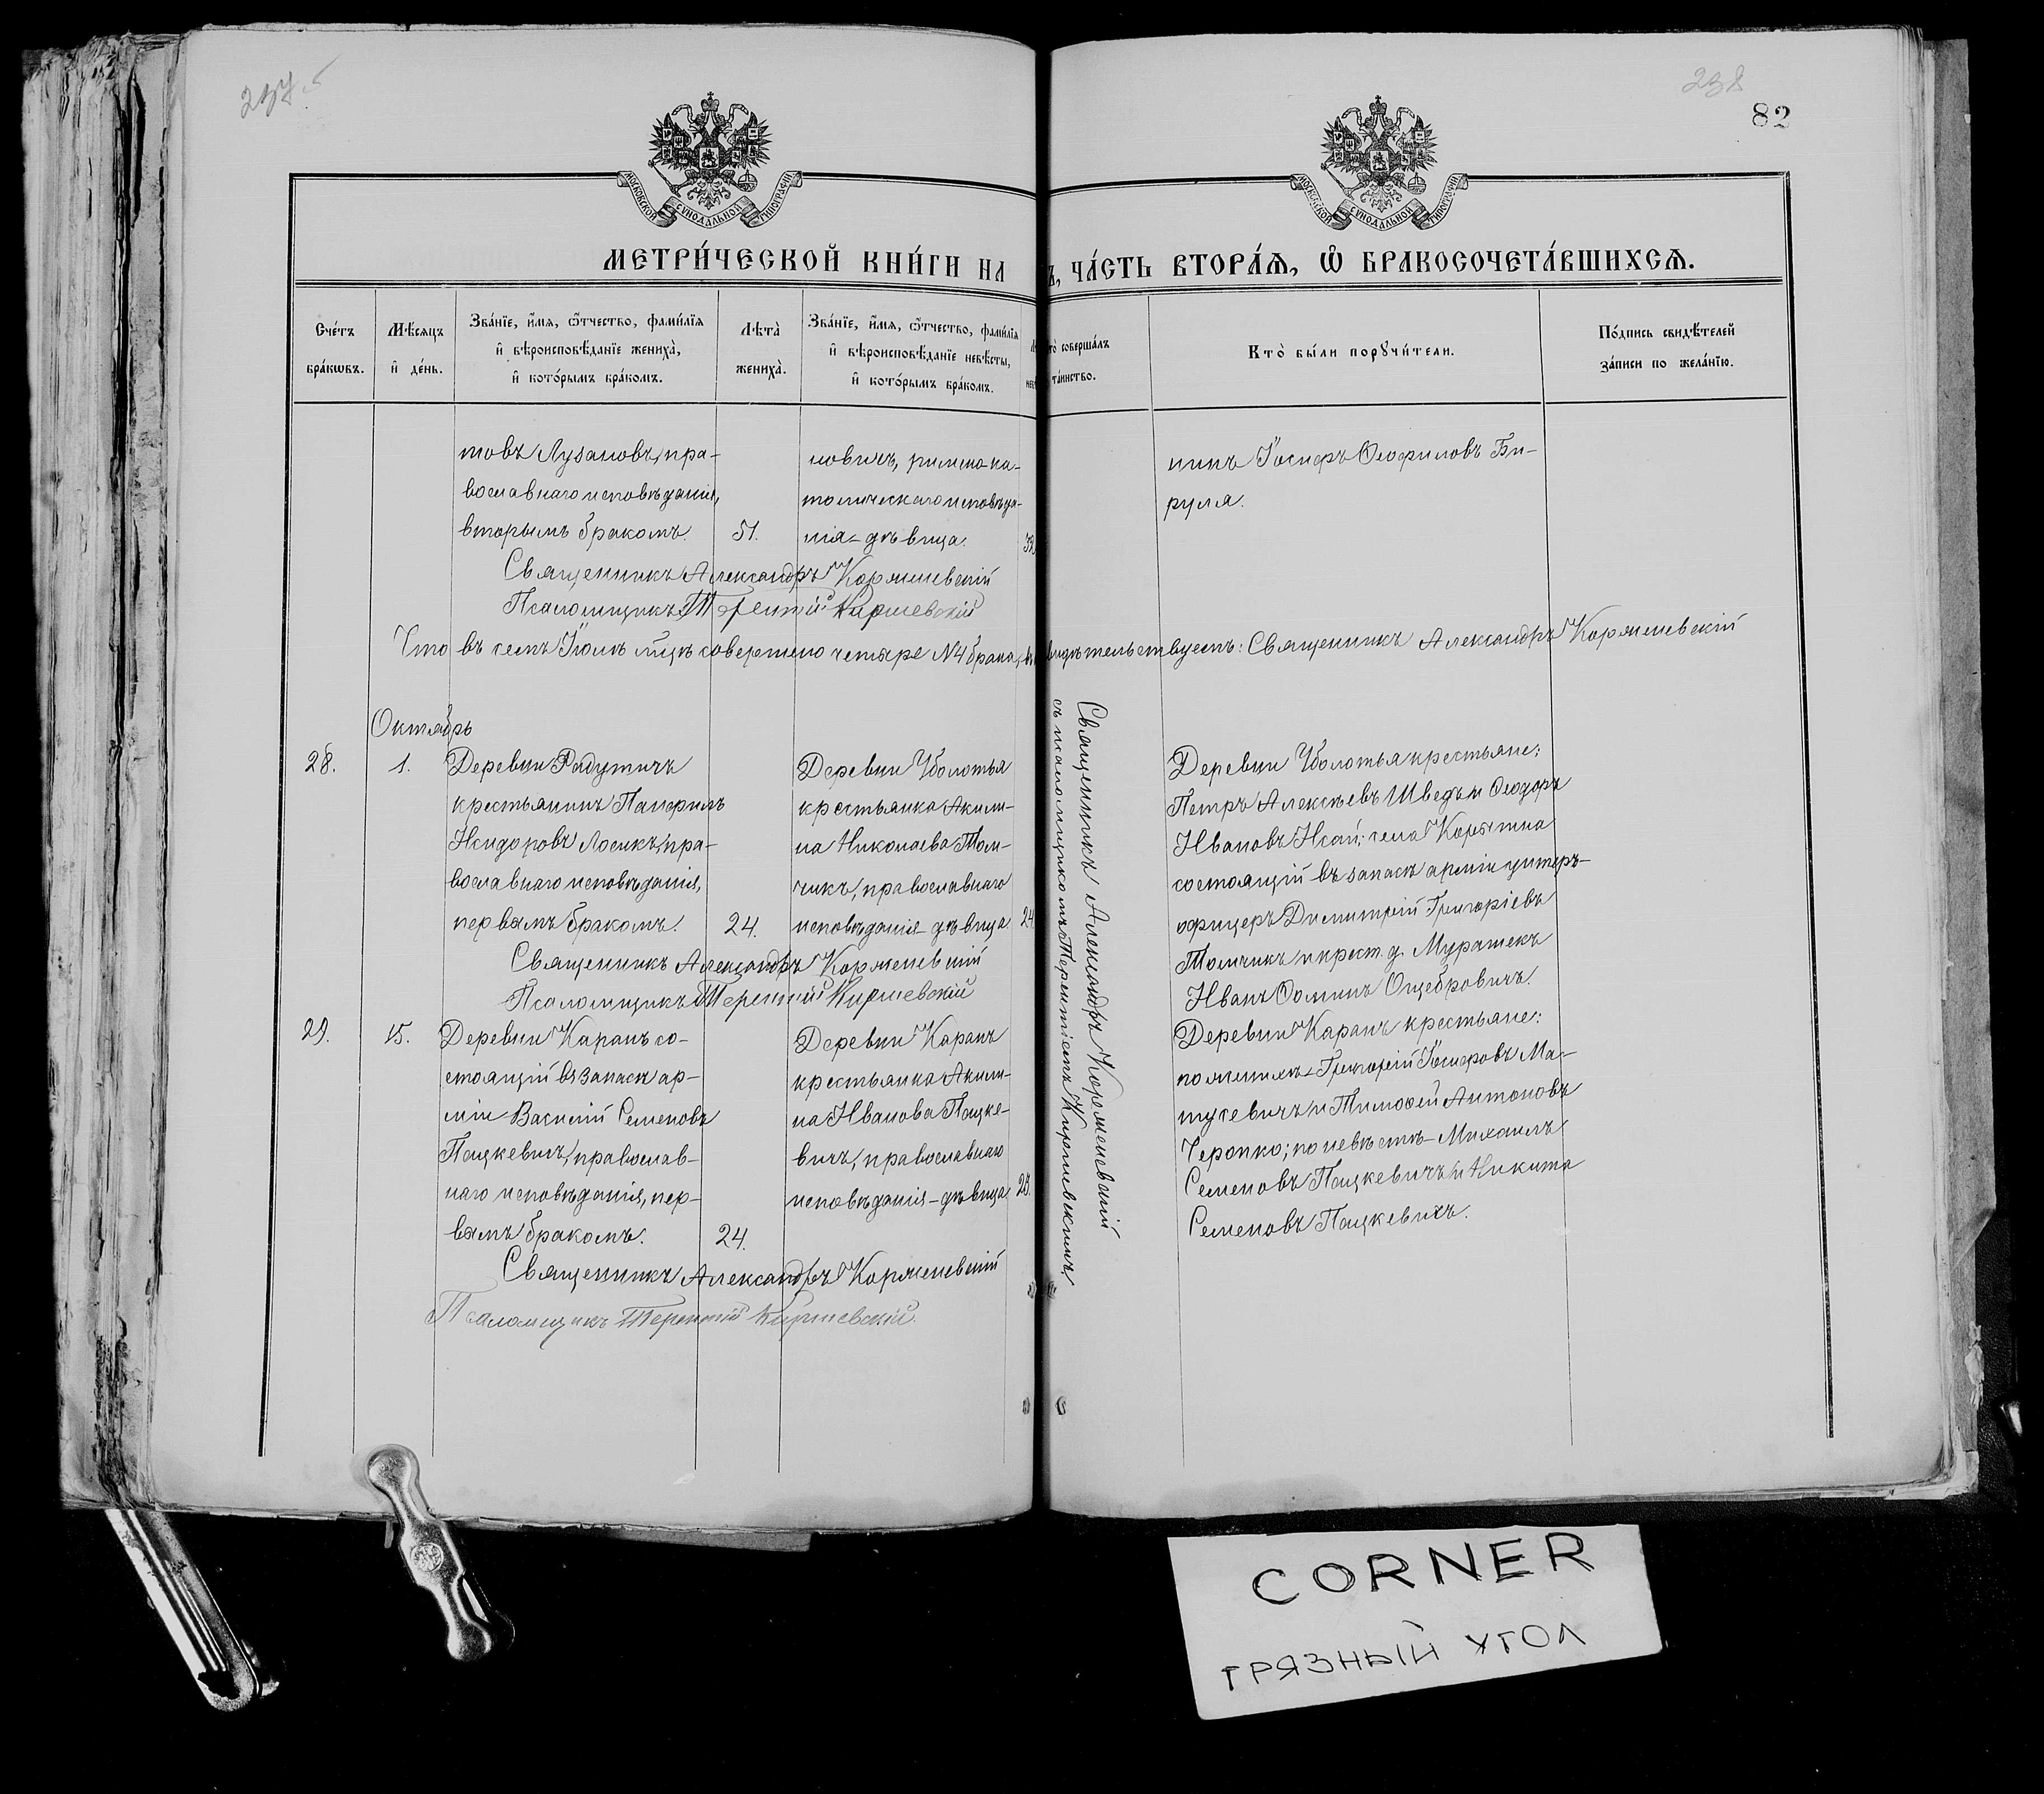 238
82
МОСКОВСКОЙ СѴНОДАЛЬНОЙ ТИПОГРАФІИ
МОСКОВСКОЙ СѴНОДАЛЬНОЙ ТИПОГРАФІИ
МЕТРИ́ЧЕСКОЙ КНИ́ГИ НА
Ъ, ЧА́СТЬ ВТОРА́Ѧ, Ѽ БРАКОСОЧЕТА́ВШИХСѦ.
Сче́тъ
бра́кѡвъ.
Мѣ́сяцъ
и҆ де́нь.
Зва́нїе, и҆́мѧ, ѻ҆́тчество, фами́лїѧ
и҆ вѣроисповѣ́данїе жениха̀,
и҆ кото́рымъ бра́комъ.
Лѣта̀
жениха̀.
Зва́нїе, и҆́мѧ, ѻ҆́тчество, фами́лїѧ
и҆ вѣроисповѣ́данїе невѣ́сты,
и҆ кото́рымъ бра́комъ.
то̀ соверша́лъ
та́инство.
Кто̀ бы́ли порꙋчи́тели.
По́дпись свидѣ́телей
за́писи по жела́нїю.
товъ Лузановъ, пра-
вославнаго исповѣданія,
вторымъ бракомъ. 51.
новичъ, римско ка-
толическаго исповѣда-
нія - дѣвица.
нинъ Іосифъ Ѳеофиловъ Би-
руля.
Священникъ Александръ Корженевскій
Псаломщикъ Терентій Киршевскій
Что въ семъ Іюлѣ мцѣ совершено четыре №4 брака, свидѣтельствуетъ: Священникъ Александръ Корженевскій
Октябрь
28. 1.
Деревни Радутичъ
крестьянинъ Панфилъ
Исидоровъ Лосикъ, пра-
вославнаго исповѣданія,
первымъ бракомъ. 24.
Деревни Уболотья
крестьянка Акили-
на Николаева Том-
чикъ, православнаго
исповѣданія - дѣвица 24
Священникъ Александръ Корженевскій
съ псаломщикомъ Терентіемъ Киршевскимъ
Деревни Уболотья крестьяне:
Петръ Алексѣевъ Шведъ и Ѳеодоръ
Ивановъ Исай; села Корытна
состоящій въ запасѣ арміи унтеръ-
офицеръ Димитрій Григоріевъ
Томчикъ и крест. д. Мурашекъ
Иванъ Ѳоминъ Ощебровичъ.
Священникъ Александръ Корженевскій
Псаломщикъ Терентій Киршевскій
29. 15.
Деревни Каранъ со-
стоящій въ запасѣ ар-
міи Василій Семеновъ
Пацкевичъ, православ-
наго исповѣданія, пер-
вымъ бракомъ. 24.
Деревни Каранъ
крестьянка Акили-
на Иванова Пацке-
вичъ, православнаго
исповѣданія - дѣвица
Деревни Каранъ крестьяне:
по женихѣ - Григорій Іосифовъ Ма-
тусевичъ и Тимоѳей Антоновъ
Черопко; по невѣстѣ - Михаилъ
Семеновъ Пацкевичъ и Никита
Семеновъ Пацкевичъ.
Священникъ Александръ Корженевскій
Псаломщикъ Терентій Киршевскій.
CORNER
ГРЯЗНЫЙ УГОЛ